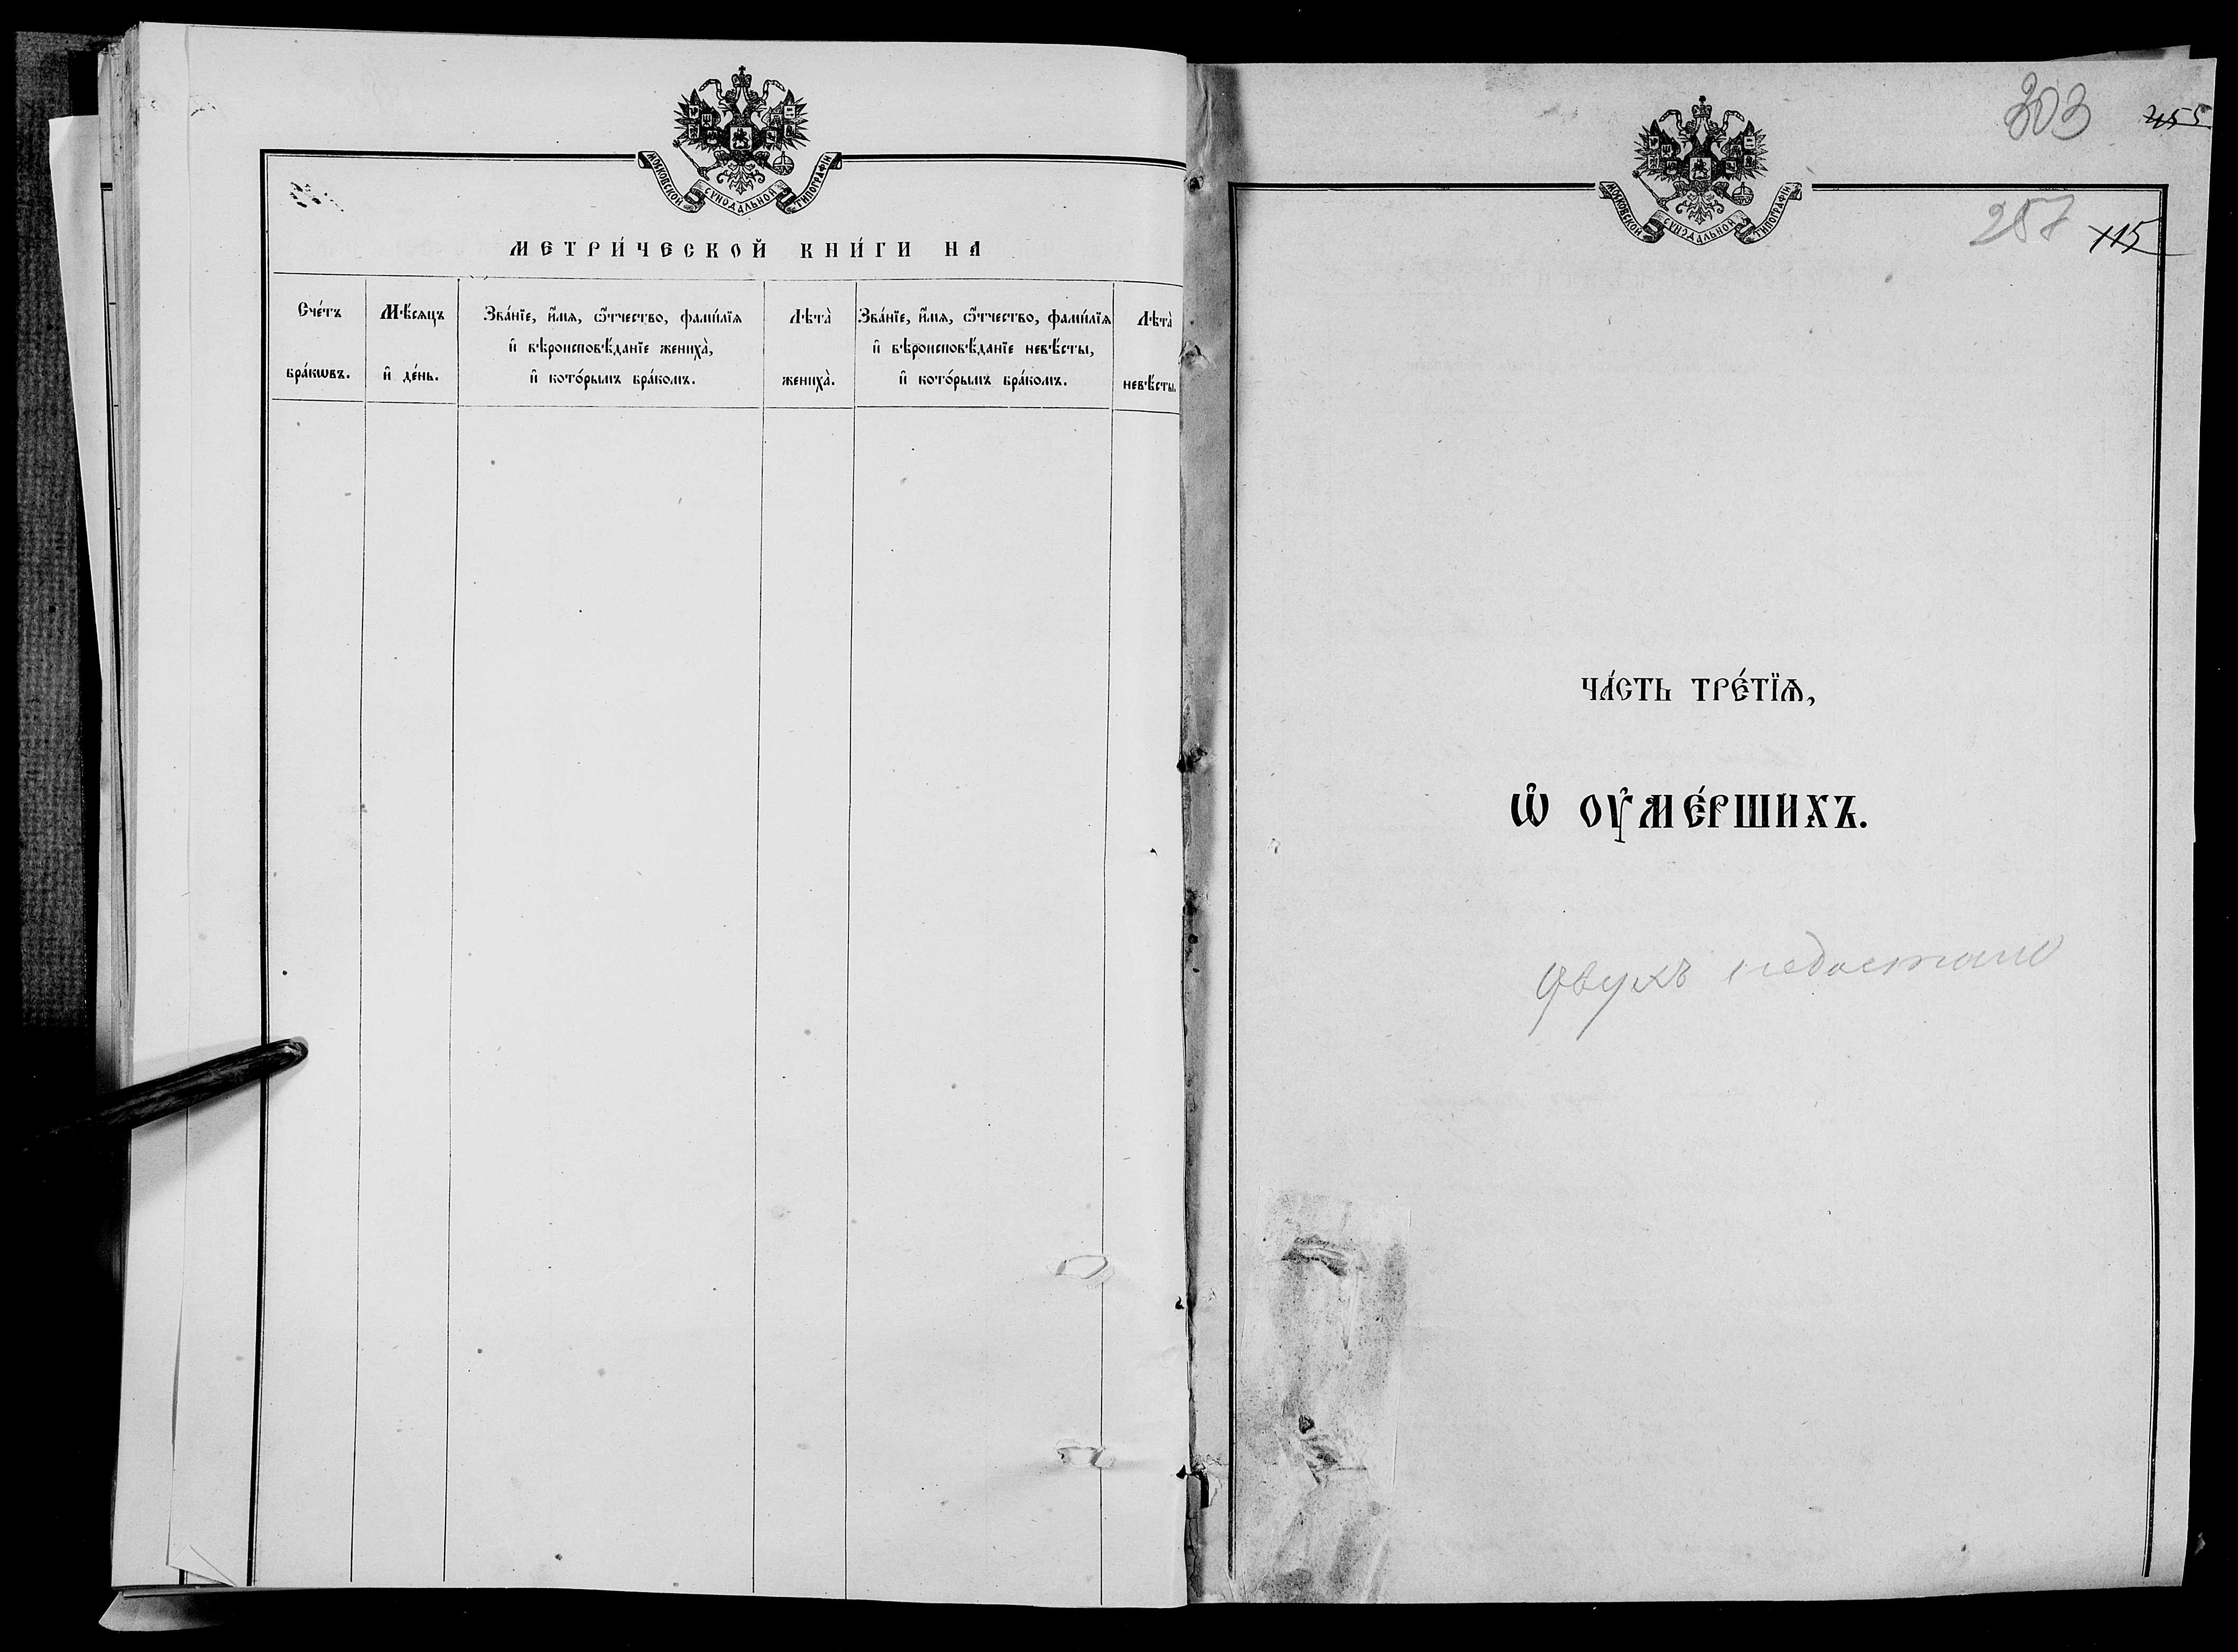 МОСКОВСКОЙ СΥНОДАЛЬНОЙ ТИПОГРАФІИ
МЕТРИ́ЧЕСКОЙ КНИ́ГИ НА
Сче́тъ бра́кѡвъ.
Мѣ́сѧцъ и҆ де́нь.
Зва́нїе, и҆́мѧ, ѻ҆́тчество, фами́лїѧ
и҆ вѣроисповѣ́данїе жениха̀,
и҆ кото́рымъ бра́комъ.
Лѣта̀ жениха̀.
Зва́нїе, и҆́мѧ, ѻ҆́тчество, фами́лїѧ
и҆ вѣроисповѣ́данїе невѣ́сты,
и҆ кото́рымъ бра́комъ.
Лѣта̀ невѣ́сты.
303 455
МОСКОВСКОЙ СΥНОДАЛЬНОЙ ТИПОГРАФІИ
257 115
ЧА́СТЬ ТРЕ́ТЇѦ,
Ѡ҆ ОУ҆МЕ́РШИХЪ.
двухъ недостало